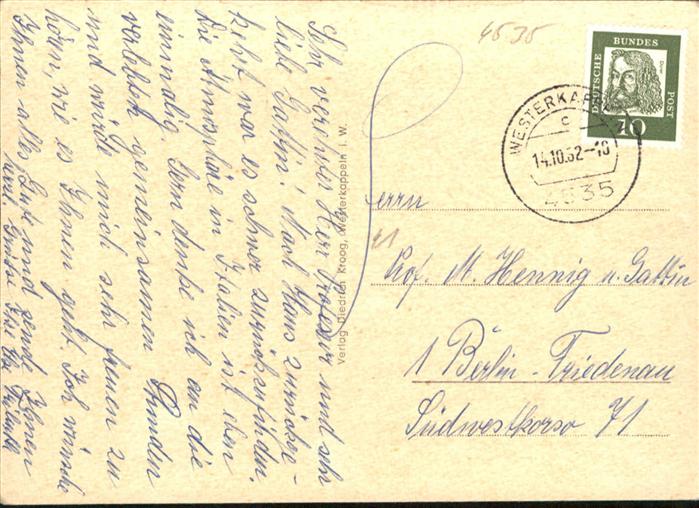 Sehr verehrter Herr Professor und sehr
liebe Gattin! Nach Haus zurückge-
kehrt war es schwer zurückzufinden.
Die Atmosphäre in Italien ist eben
einmalig. Gern denke ich an die
verlebten gemeinsamen Stunden
und würde mich sehr freuen zu
hören, wie es Ihnen geht. Ich wünsche
Ihnen alles Gute und sende Ihnen
Grüsse Ihre
Verlag Diedrich Kroog, Westerkappeln i. W.
4535
DEUTSCHE BUNDES POST
10
WESTERKAPPELN
c
14.10.62-18
4535
Herrn
Prof. M. Hennig u. Gattin
1 Berlin-Friedenau
Südwestkorso 71